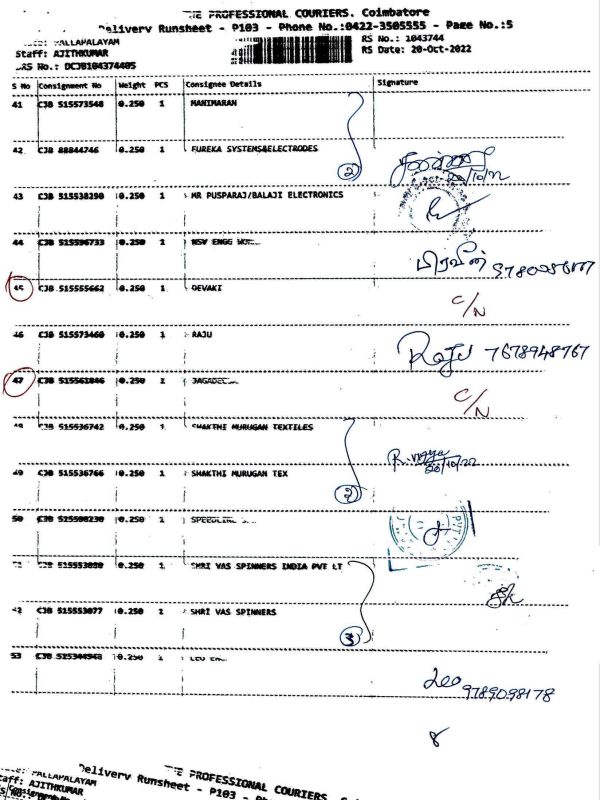 THE PROFESSIONAL COURIERS. Coimbatore
Delivery Runsheet - P103 - Phone No.:0422-3505555 - Page No.:5
PALLAPALAYAM
RS No.: 1043744
Staff: AJITHKUMAR
RS Date: 20-Oct-2022
DRS No.: DCJB104374405
S No Consignment No Weight PCS Consignee Details Signature
41 CJB 515573548 0.250 1 MANIMARAN
42 CJB 88844746 0.250 1 EUREKA SYSTEMS&ELECTRODES
2 20/10/22
43 CJB 515538290 0.250 1 MR PUSPARAJ/BALAJI ELECTRONICS
44 CJB 515596733 0.250 1 NSV ENGG
பிரவீன்
45 CJB 515555662 0.250 1 DEVAKI
C/N
46 CJB 515573460 0.250 1 RAJU
Raju 7678948767
47 CJB 515561046 0.250 1
C/N
CJB 515536742 0.250 1 SHAKTHI MURUGAN TEXTILES
49 CJB 515536766 0.250 1 SHAKTHI MURUGAN TEX
2 20/10/22
50 CJB 515598230 0.250 1
CJB 515553080 0.250 1 SHRI VAS SPINNERS INDIA PVT LT
CJB 515553077 0.250 1 SHRI VAS SPINNERS
3
53 CJB 525344948 0.250 1
Leo 9789098178
8
THE PROFESSIONAL COURIERS.
Delivery Runsheet - P103 -
PALLAPALAYAM
Staff: AJITHKUMAR